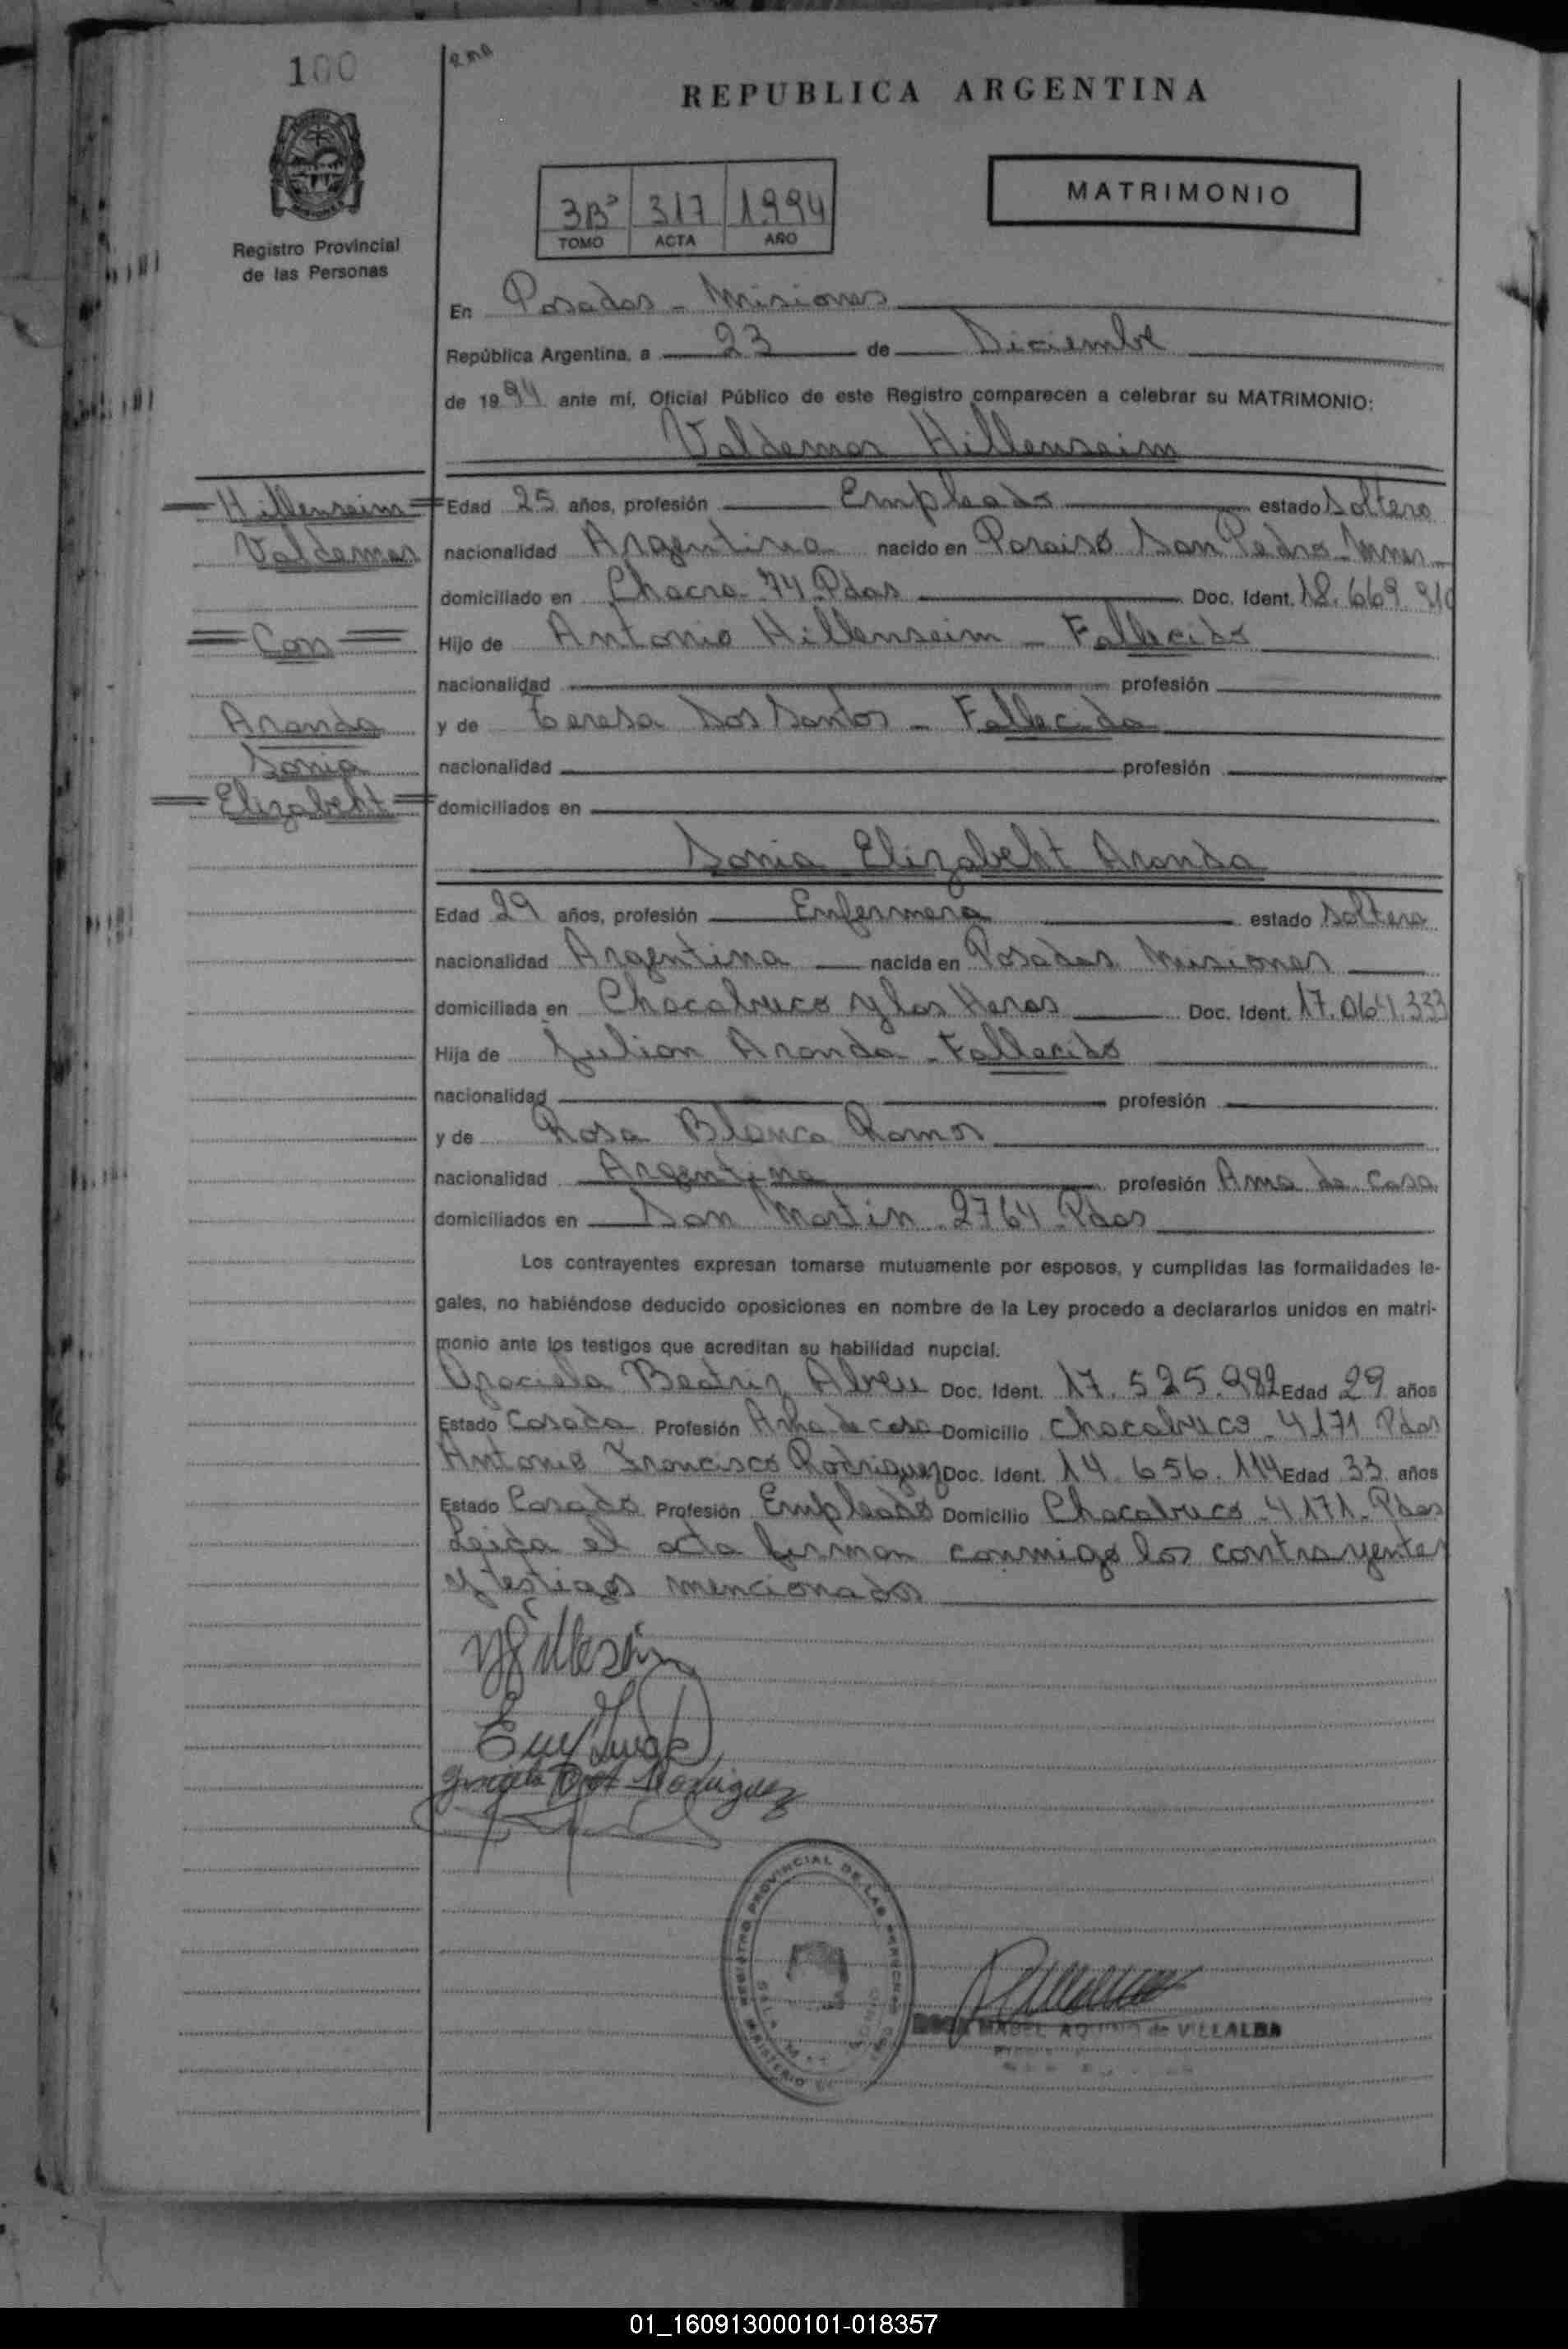 100
REPUBLICA ARGENTINA
MATRIMONIO
3Bº 317 1994
TOMO ACTA AÑO
Registro Provincial
de las Personas
En Posadas - Misiones
República Argentina, a 23 de Diciembre
de 1994 ante mí, Oficial Público de este Registro comparecen a celebrar su MATRIMONIO:
Valdemar Hillenseim
Hillenseim
Valdemar
Con
Aranda
Sonia
Elizabeht
Edad 25 años, profesión Empleado estado Soltero
nacionalidad Argentina nacido en Paraiso San Pedro - Mnes
domiciliado en Chacra 74 Pdas Doc. Ident. 18.669.910
Hijo de Antonio Hillenseim - Fallecido
nacionalidad profesión
y de Teresa Dos Santos - Fallecida
nacionalidad profesión
domiciliados en
Sonia Elizabeht Aranda
Edad 29 años, profesión Enfermera estado Soltera
nacionalidad Argentina nacida en Posadas Misiones
domiciliada en Chacabuco y las Heras Doc. Ident. 17.064.333
Hija de Julian Aranda - Fallecido
nacionalidad profesión
y de Rosa Blanca Ramos
nacionalidad Argentina profesión Ama de casa
domiciliados en San Martin 2764 Pdas
Los contrayentes expresan tomarse mutuamente por esposos, y cumplidas las formalidades le-
gales, no habiéndose deducido oposiciones en nombre de la Ley procedo a declararlos unidos en matri-
monio ante los testigos que acreditan su habilidad nupcial.
Graciela Beatriz Abreu Doc. Ident. 17.525.982 Edad 29 años
Estado Casada Profesión Ama de casa Domicilio Chacabuco - 4171 Pdas
Antonio Francisco Rodriguez Doc. Ident. 14.656.114 Edad 33 años
Estado Casado Profesión Empleado Domicilio Chacabuco - 4171 - Pdas
Leida el acta firman conmigo los contrayentes
y testigos mencionados
REGISTRO PROVINCIAL DE LAS PERSONAS
MABEL AQUINO de VILLALBA
01_160913000101-018357